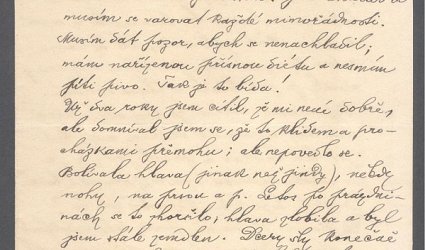 musím se varovat každé mimořádnosti.
Musím dát pozor, abych se nenachladil;
mám nařízenou přísnou diétu a nesmím
píti pivo. Tak je to bída.
Už dva roky jsem cítil, že mi není dobře,
ale domníval jsem se, že to klidem a pro-
cházkami přemohu; ale nepovedlo se.
Bolívala hlava (jinak než jindy), někdy
nohy, na prsou a p. Letos po prázdni-
nách se to zhoršilo; hlava zlobila a byl
jsem stále zemdlen. Dcery šly konečně